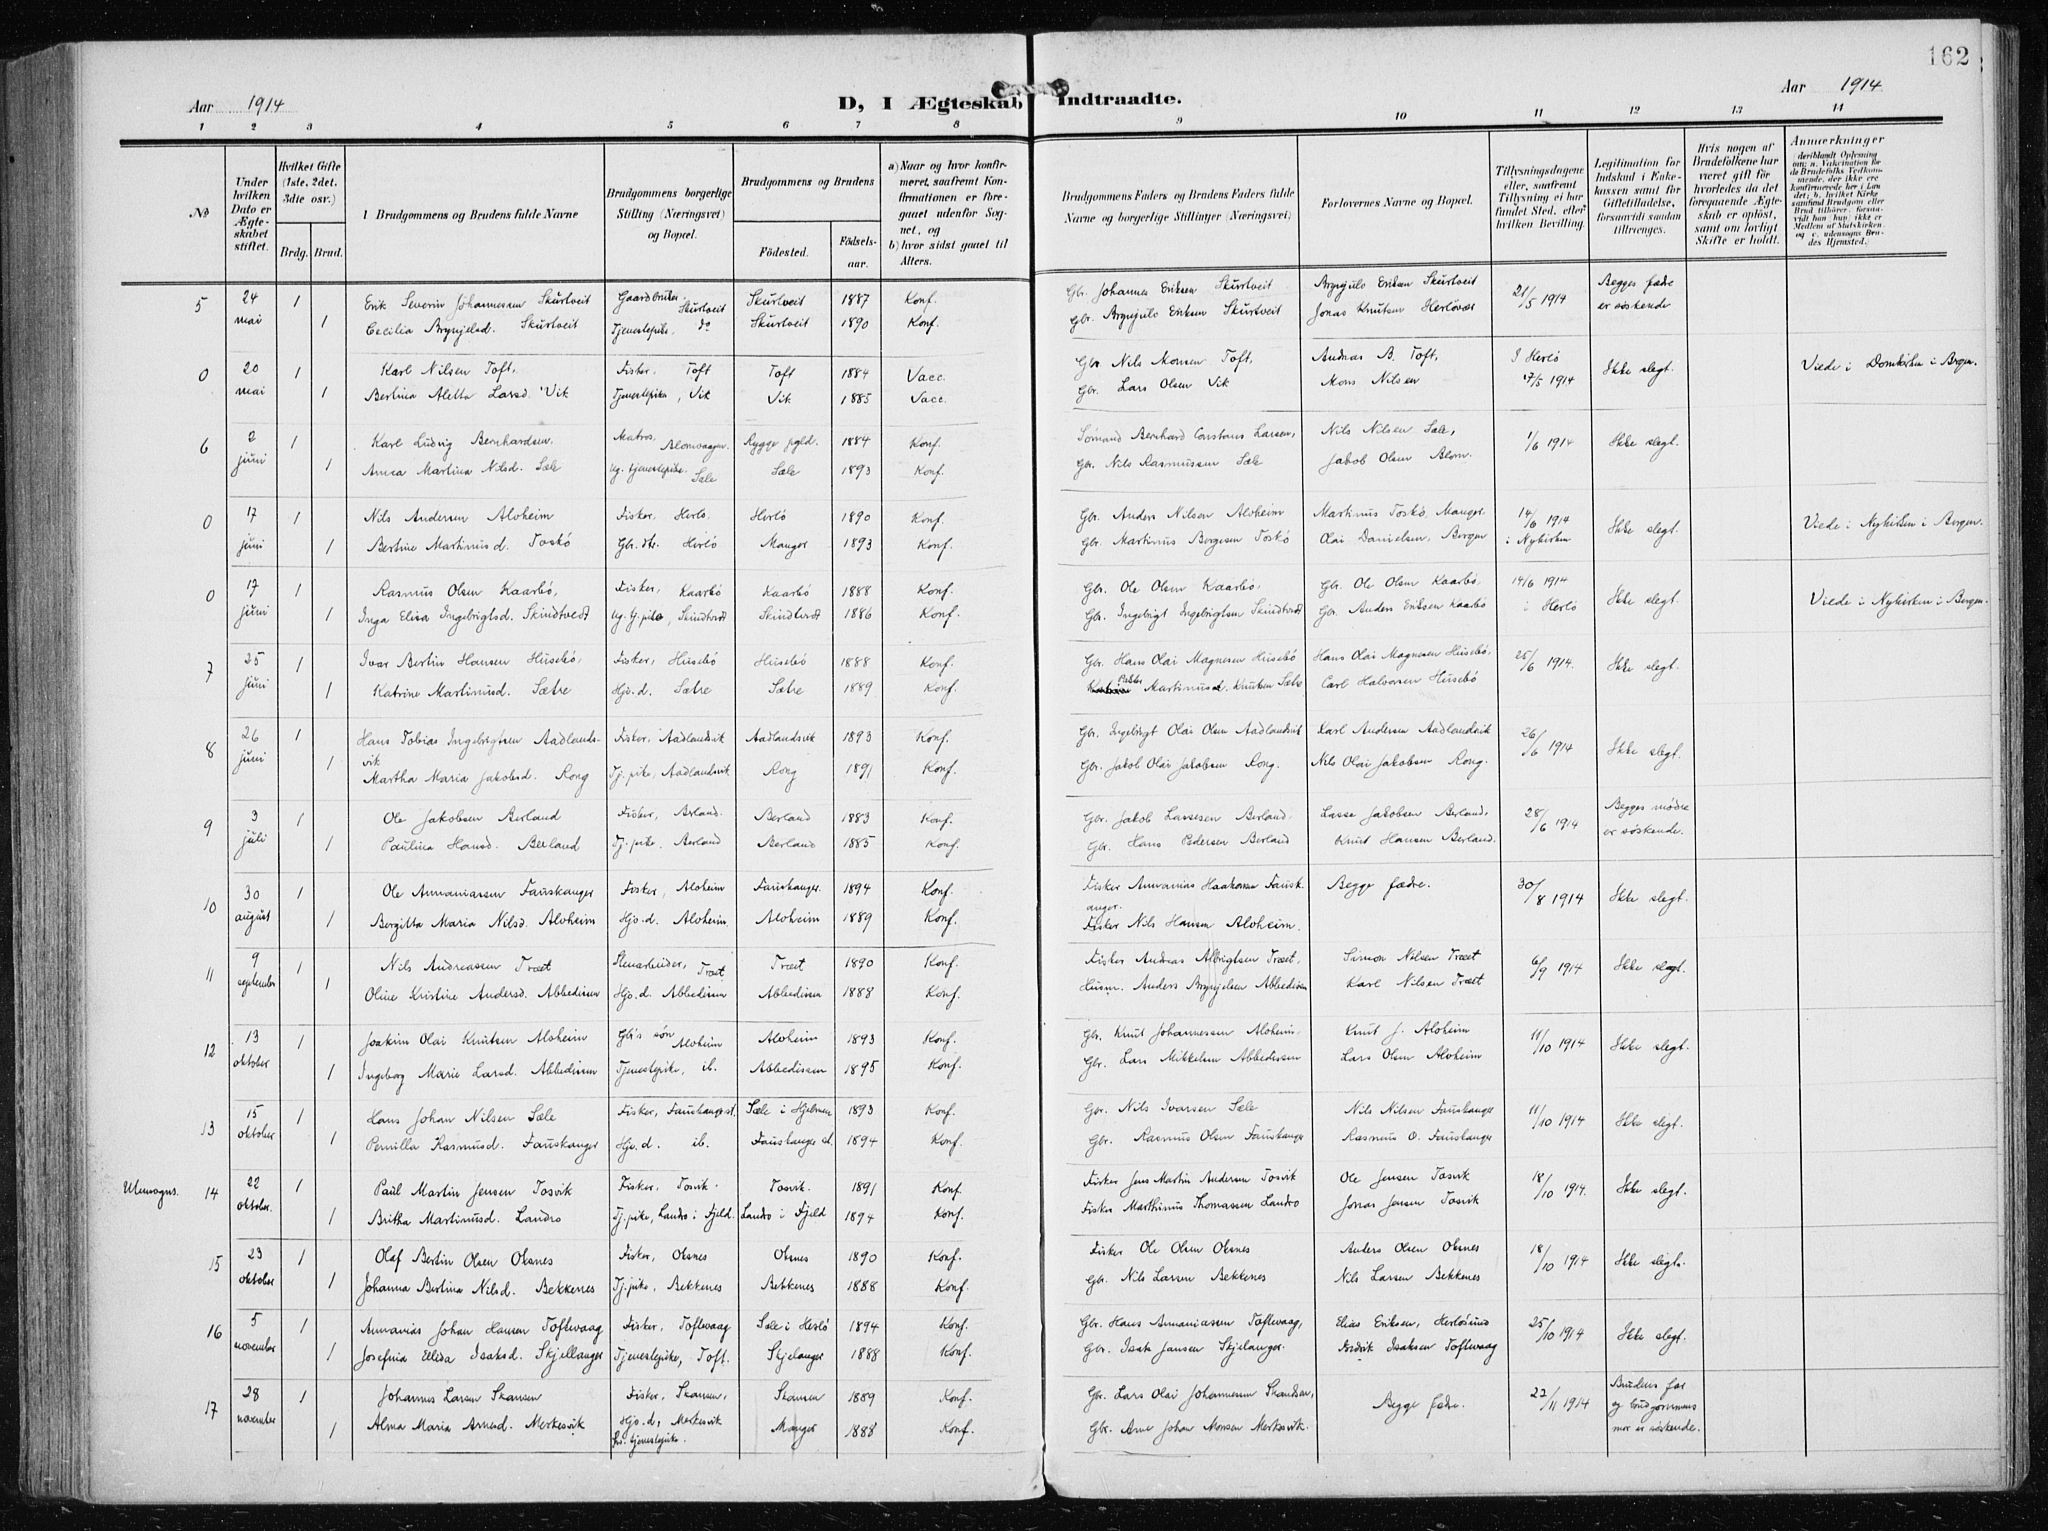 162
Aar 1914
D, I Ægteskab Indtraadte.
Aar 1914
1 2 3 4 5 6 7 8 9 10 11 12 13 14
No
Under hvilken Dato er Ægteskabet stiftet.
Hvilket Gifte (1ste, 2det, 3die osv.)
Brdg. Brud.
Brudgommens og Brudens fulde Navne
Brudgommens borgerlige Stilling (Næringsvei) og Bopæl.
Brudgommens og Brudens
Fødested. Fødselsaar.
a) Naar og hvor konfirmeret, saafremt Konfirmationen er foregaaet udenfor Sognet, og
b) hvor sidst gaaet til Alters.
Brudgommens Faders og Brudens Faders fulde Navne og borgerlige Stillinger (Næringsvei)
Forlovernes Navne og Bopæl.
Tillysningsdagene eller, saafremt Tillysning ei har fundet Sted, efter hvilken Bevilling.
Legitimation for Indskud i Enkekassen samt for Giftetilladelse, forsaavidt saadan tiltrænges.
Hvis nogen af Brudefolkene har været gift før hvorledes da det foregaaende Ægteskab er opløst, samt om lovligt Skifte er holdt.
Anmærkninger (deriblandt Oplysning om: a. Vakcination for de Brudefolks Vedkommende, der ikke ere konfirmerede her i Landet; b. hvilket Kirkesamfund Brudgom eller Brud tilhører, forsaavidt han (hun) ikke er Medlem af Statskirken, og c. udensogns Brudes Hjemsted.
5 24 mai 1 Erik Severin Johannessen Skurtveit Gaardbruker Skurtveit Skurtveit 1887 Konf. Gbr. Johannes Eriksen Skurtveit Brynjulv Eriksen Skurtveit 21/5 1914 Begges fædre er søskende
1 Cecilia Brynjelsd. Skurtveit Tjenestepike, do Skurtveit 1890 Konf. Gbr. Brynjulv Eriksen Skurtveit Jonas Knutsen Herløvær
0 20 mai 1 Karl Nilsen Toft, Fisker, Toft Toft 1884 Vacc. Gbr. Nils Monsen Toft, Andreas B. Toft, I Herlø 17/5 1914 Ikke slegt. Viede i Domkirken i Bergen
1 Bertina Aletta Larsd. Vik Tjenestepike, Vik Vik 1885 Vacc. Gbr. Lars Olsen Vik Mons Nilsen
6 2 juni 1 Karl Ludvig Bernhardsen. Matros, Blomvaagen Rygge pgld. 1884 Konf. Sømand Bernhard Constans Larsen, Nils Nilsen Sæle, 1/6 1914 Ikke slegt.
1 Anna Martina Nilsd. Sæle Ug. tjenestepike. Sæle Sæle 1893 Konf. Gbr. Nils Rasmussen Sæle Jakob Olsen Blom.
0 17 juni 1 Nils Andersen Aloheim Fisker, Herlø. Herlø 1890 Konf. Gbr. Anders Nilsen Aloheim Martinus Toskø, Manger 14/6 1914 i Nykirken Ikke slegt. Viede i Nykirken i Bergen.
1 Bertine Martinusd. Toskø Gbr. dtr. Herlø Manger 1893 Konf. Gbr. Martinus Børgesen Toskø Olai Danielsen, Bergen
0 17 juni 1 Rasmus Olsen Kaarbø, Fisker, Kaarbø Kaarbø 1888 Konf. Gbr. Ole Olsen Kaarbø, Gbr. Ole Olsen Kaarbø, 14/6 1914 i Herlø Ikke slegt. Viede i Nykirken i Bergen.
1 Inga Elisa Ingebrigtsd. Skindtvedt Ug. tj. pike, Skindtvedt Skindtvedt 1886 Konf. Gbr. Ingebrigt Ingebrigtsen Skindtvedt Gbr. Anders Eriksen Kaarbø
7 25 juni 1 Ivar Bertin Hansen Husebø, Fisker, Husebø Husebø 1888 Konf. Gbr. Hans Olai Magnesen Husebø Hans Olai Magnesen Husebø, 25/6 1914. Ikke slegt.
1 Katrine Martinusd. Sætre Hjv. d. Sætre Sætre 1889 Konf. Martinus Knutsen Sætre Carl Halvorsen Husebø
8 26 juni 1 Hans Tobias Ingebrigtsen Aadlandsvik Fisker, Aadlandsvik Aadlandsvik 1893 Konf. Gbr. Ingebrigt Olai Olsen Aadlandsvik Karl Andersen Aadlandsvik 26/6 1914 Ikke slegt.
1 Martha Maria Jakobsd. Rong Tj. pike, Aadlandsvik Rong 1891 Konf. Gbr. Jakob Olai Jakobsen Rong. Nils Olai Jakobsen Rong.
9 3 juli 1 Ole Jakobsen Berland Fisker, Berland. Berland 1883 Konf. Gbr. Jakob Lassesen Berland. Lasse Jakobsen Berland, 28/6 1914 Begges mødre er søskende.
1 Paulina Hansd. Berland Tj. pike, Berland Berland 1885 Konf. Gbr. Hans Pedersen Berland Knut Hansen Berland.
10 30 august 1 Ole Annaniassen Fauskanger Fisker, Aloheim Fauskanger. 1894 Konf. Fisker Annanias Haakonsen Fauskanger. Begge fædre. 30/8 1914 Ikke slegt.
1 Bergitta Maria Nilsd. Aloheim Hjv. d. Aloheim. Aloheim 1889 Konf. Fisker Nils Hansen Aloheim.
11 9 september 1 Nils Andreassen Træet Stenarbeider, Træet Træet 1890 Konf. Fisker Andreas Albrigtsen Træet, Simon Nilsen Træet 6/9 1914 Ikke slegt
1 Oline Kristine Andersd. Abbedissen Hjv. d. Abbedissen Abbedissen 1888 Konf. Husm. Anders Brynjelsen Abbedissen Karl Nilsen Træet
12 13 oktober 1 Joakim Olai Knutsen Aloheim Gbr's søn Aloheim Aloheim 1893 Konf. Gbr. Knut Johannessen Aloheim. Knut J. Aloheim 11/10 1914 Ikke slegt.
1 Ingeborg Marie Larsd. Abbedissen Tjenestepike, ib. Abbedissen 1895 Konf. Gbr. Lars Mikkelsen Abbedissen Lars Olsen Aloheim
13 15 oktober 1 Hans Johan Nilsen Sæle Fisker, Fauskanger st. Sæle i Hjelmen 1893 Konf. Gbr. Nils Ivarsen Sæle Nils Nilsen Fauskanger 11/10 1914 Ikke slegt.
1 Pernilla Rasmusd. Fauskanger Hjv. d. ib. Fauskanger st. 1894 Konf. Gbr. Rasmus Olsen Fauskanger Rasmus O. Fauskanger
Utensogns. 14 22 oktober. 1 Paul Martin Jensen Tosvik Fisker, Tosvik. Tosvik. 1891 Konf. Fisker Jens Martin Andersen Tosvik Ole Jensen Tosvik 18/10 1914. Ikke slegt.
1 Britha Martinusd. Landro Tj. pike, Landro i Fjeld. Landro i Fjeld 1894 Konf. Fisker Marthinus Thomassen Landro Jonas Jensen Tosvik
15 23 oktober 1 Olaf Bertin Olsen Oksnes Fisker, Oksnes Oksnes 1890 Konf. Fisker Ole Olsen Oksnes Anders Olsen Oksnes 18/10 1914 Ikke slegt.
1 Johanna Bertina Nilsd. Bekkenes Tj. pike, Bekkenes Bekkenes 1888 Konf. Gbr. Nils Larsen Bekkenes Nils Larsen Bekkenes
16 5 november 1 Annanias Johan Hansen Toftevaag Fisker, Toftevaag Sæle i Herlø 1894 Konf. Gbr. Hans Annaniassen Toftevaag, Elias Eriksen, Herløsund 25/10 1914 Ikke slegt.
1 Josefina Ellida Isaksd. Skjellanger Tjenestepike, Toft. Skjelanger 1888 Konf. Gbr. Isak Jansen Skjelanger. Fredrik Isaksen Toftevaag
17 28 november 1 Johannes Larsen Skansen Fisker, Skansen, Skansen 1889 Konf. Gbr. Lars Olai Johannessen Skandsen, Begge fædre. 22/11 1914 Brudens far og brudgommens mor er søskende.
1 Alma Maria Arnesd. Merkesvik Hjv. d., Merkesvik tjenestepike. Manger 1888 Konf. Gbr. Arne Johan Monsen Merkesvik.